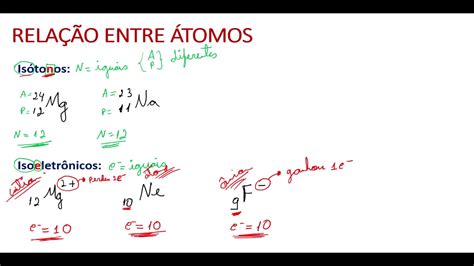 RELAÇÃO ENTRE ÁTOMOS
Isótonos: N = iguais { A P } diferentes
A=24 Mg A=23 Na
P=12 P=11
N=12 N=12
Isoeletrônicos: e⁻ = iguais
cátion átomo ânion
12 Mg 2+ → Perdeu 2e⁻ 10 Ne 9 F⁻ → ganhou 1e⁻
e⁻=10 e⁻=10 e⁻=10